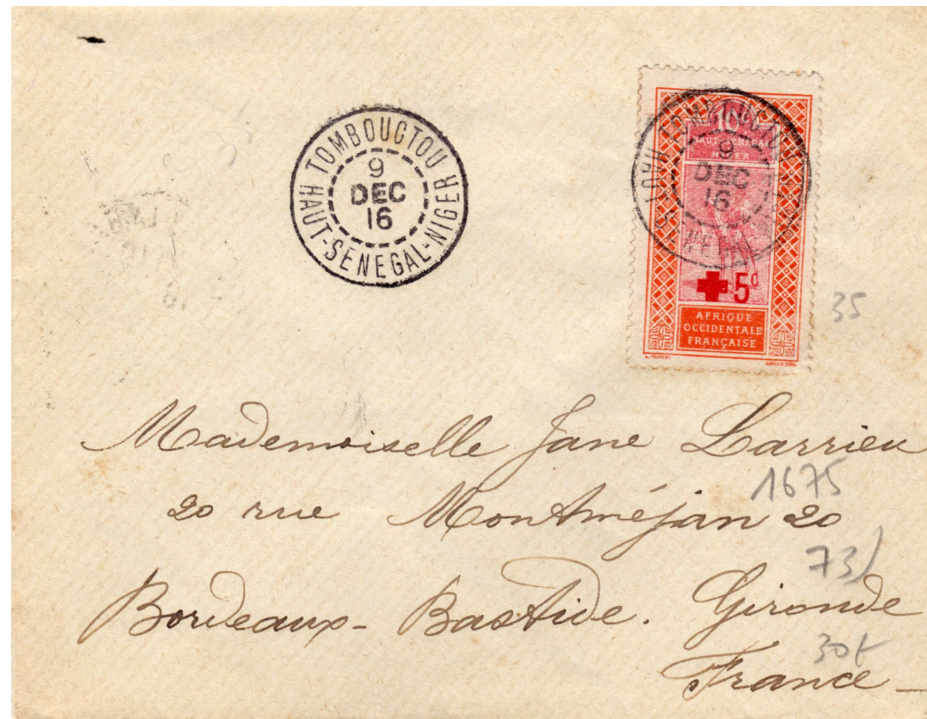 TOMBOUCTOU
9
DEC
16
HAUT-SENEGAL-NIGER
10
HAUT-SÉNÉGAL
NIGER
9
DEC
16
5c
AFRIQUE
OCCIDENTALE
FRANÇAISE
35
Mademoiselle Jane Larrieu
20 rue Montméjan 20
1675
73
Bordeaux-Bastide. Gironde
30f
France